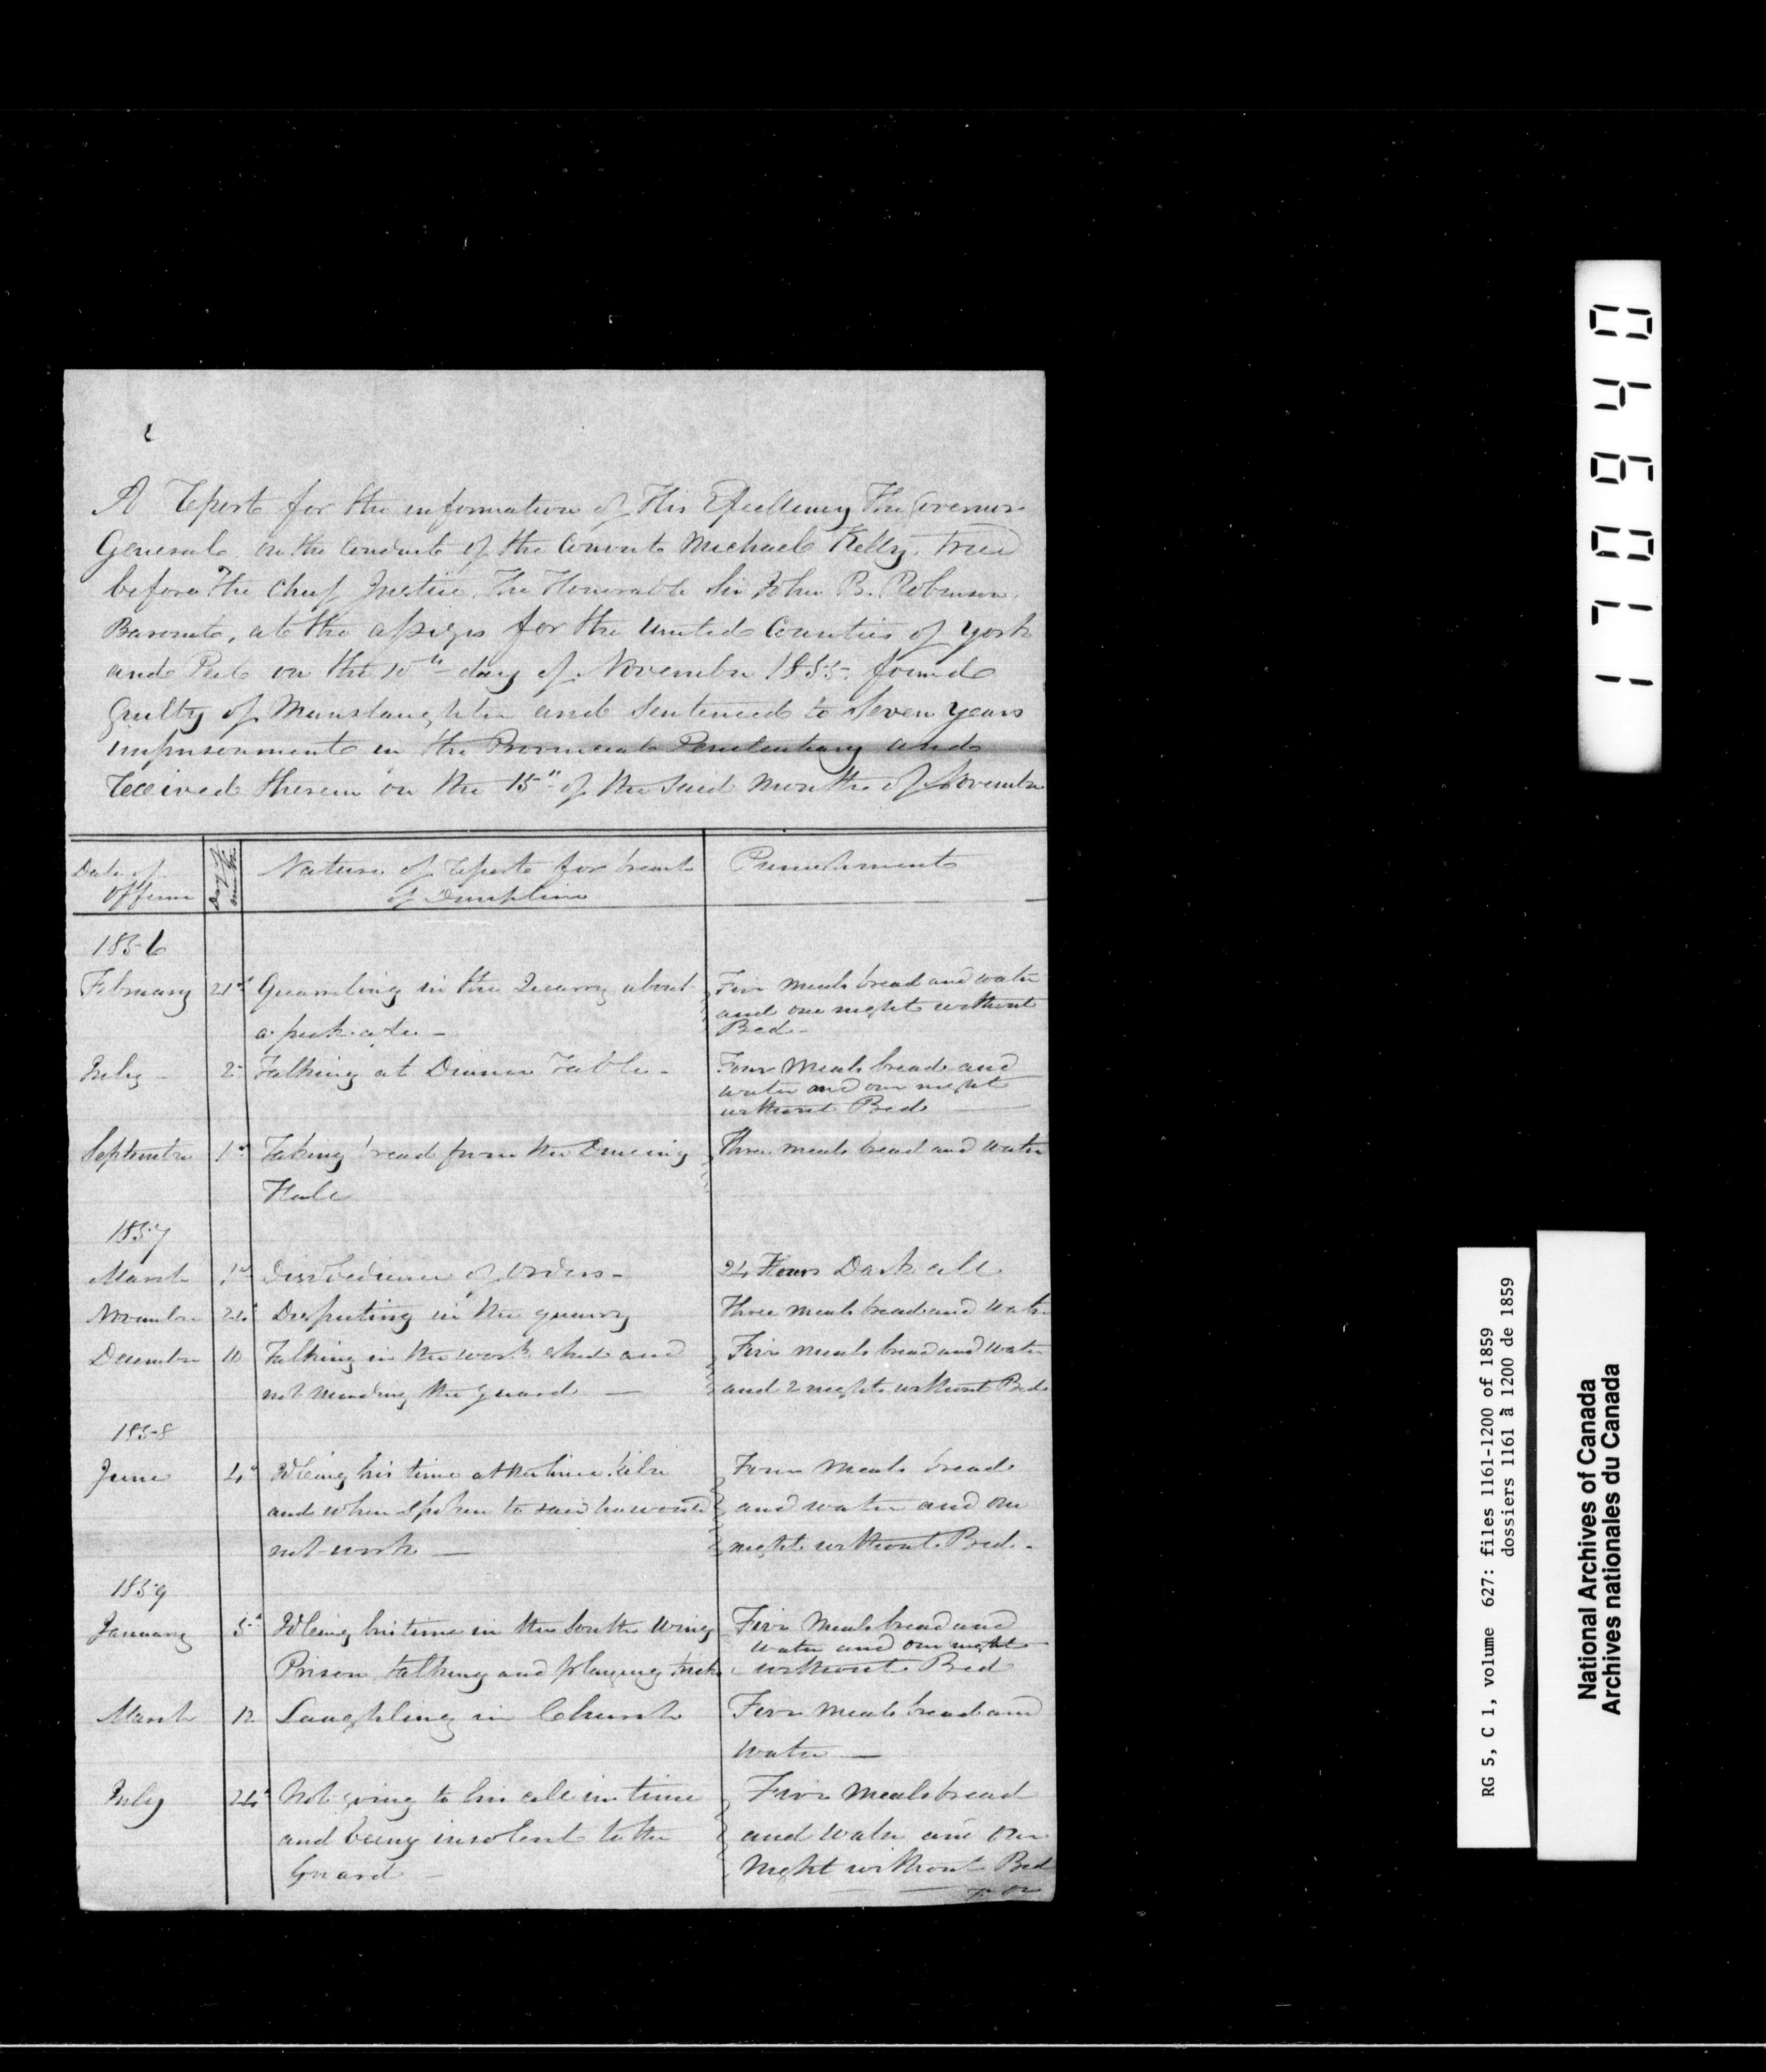 A Report for the information of His Excellency The Governor
General, on the Conduct of the Convict Michael Kelly, Tried
before The Chief Justice, The Honorable Sir John B. Robinson,
Baronet, at the assizes for the United Counties of York
and Peel on the 10th day of November 1855. found
Guilty of Manslaughter and Sentenced to Seven years
imprisonment in the Provincial Penitentiary and
Received therein on the 15th of the said Month of November
Date of Offence
Day of Month
Nature of Reports for breach of Discipline
Punishments
1856
February 21st Quarreling in the Quarry about a pick axe.— Five meals bread and water and one night without Bed.
July 2 Talking at Dinner Table. Four Meals bread and water and one night without Bed
September 1st Taking bread from the Dining Hall Three meals bread and water
1857
March Disobedience of Orders— 24 Hours Dark cell
November 24 Disputing in the quarry Three meals bread and water
December 10 Talking in the work shed and not minding the guard — Five meals bread and water and 2 nights without Bed
1858
June 4th Idleing his time at the lime kiln and when spoken to said he would not work — Four Meals bread and water and one night without Bed.
1859
January 5th Idleing his time in the South Wing Prison talking and playing tricks Five Meals bread and water and one night without Bed
March 12 Laughling in Church Five Meals bread and water —
July 24th Not going to his cell in time and being insolent to the Guard — Five Meals bread and water and one Night without Bed
1170940
RG 5, C 1, volume 627: files 1161-1200 of 1859
dossiers 1161 à 1200 de 1859
National Archives of Canada
Archives nationales du Canada